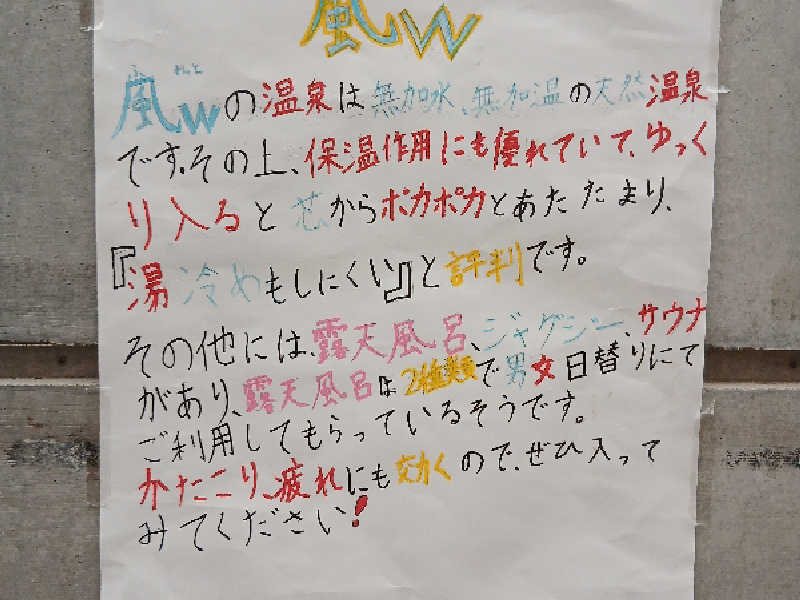 風W
風Wの温泉は無加水、無加温の天然温泉
です。その上、保温作用にも優れていて、ゆっく
り入ると芯からポカポカとあたたまり、
『湯冷めもしにくい』と評判です。
その他には、露天風呂、ジャグジー、サウナ
があり、露天風呂は2種類で男女日替りにて
ご利用してもらっているそうです。
かたこり、疲れにも効くので、ぜひ入って
みてください!